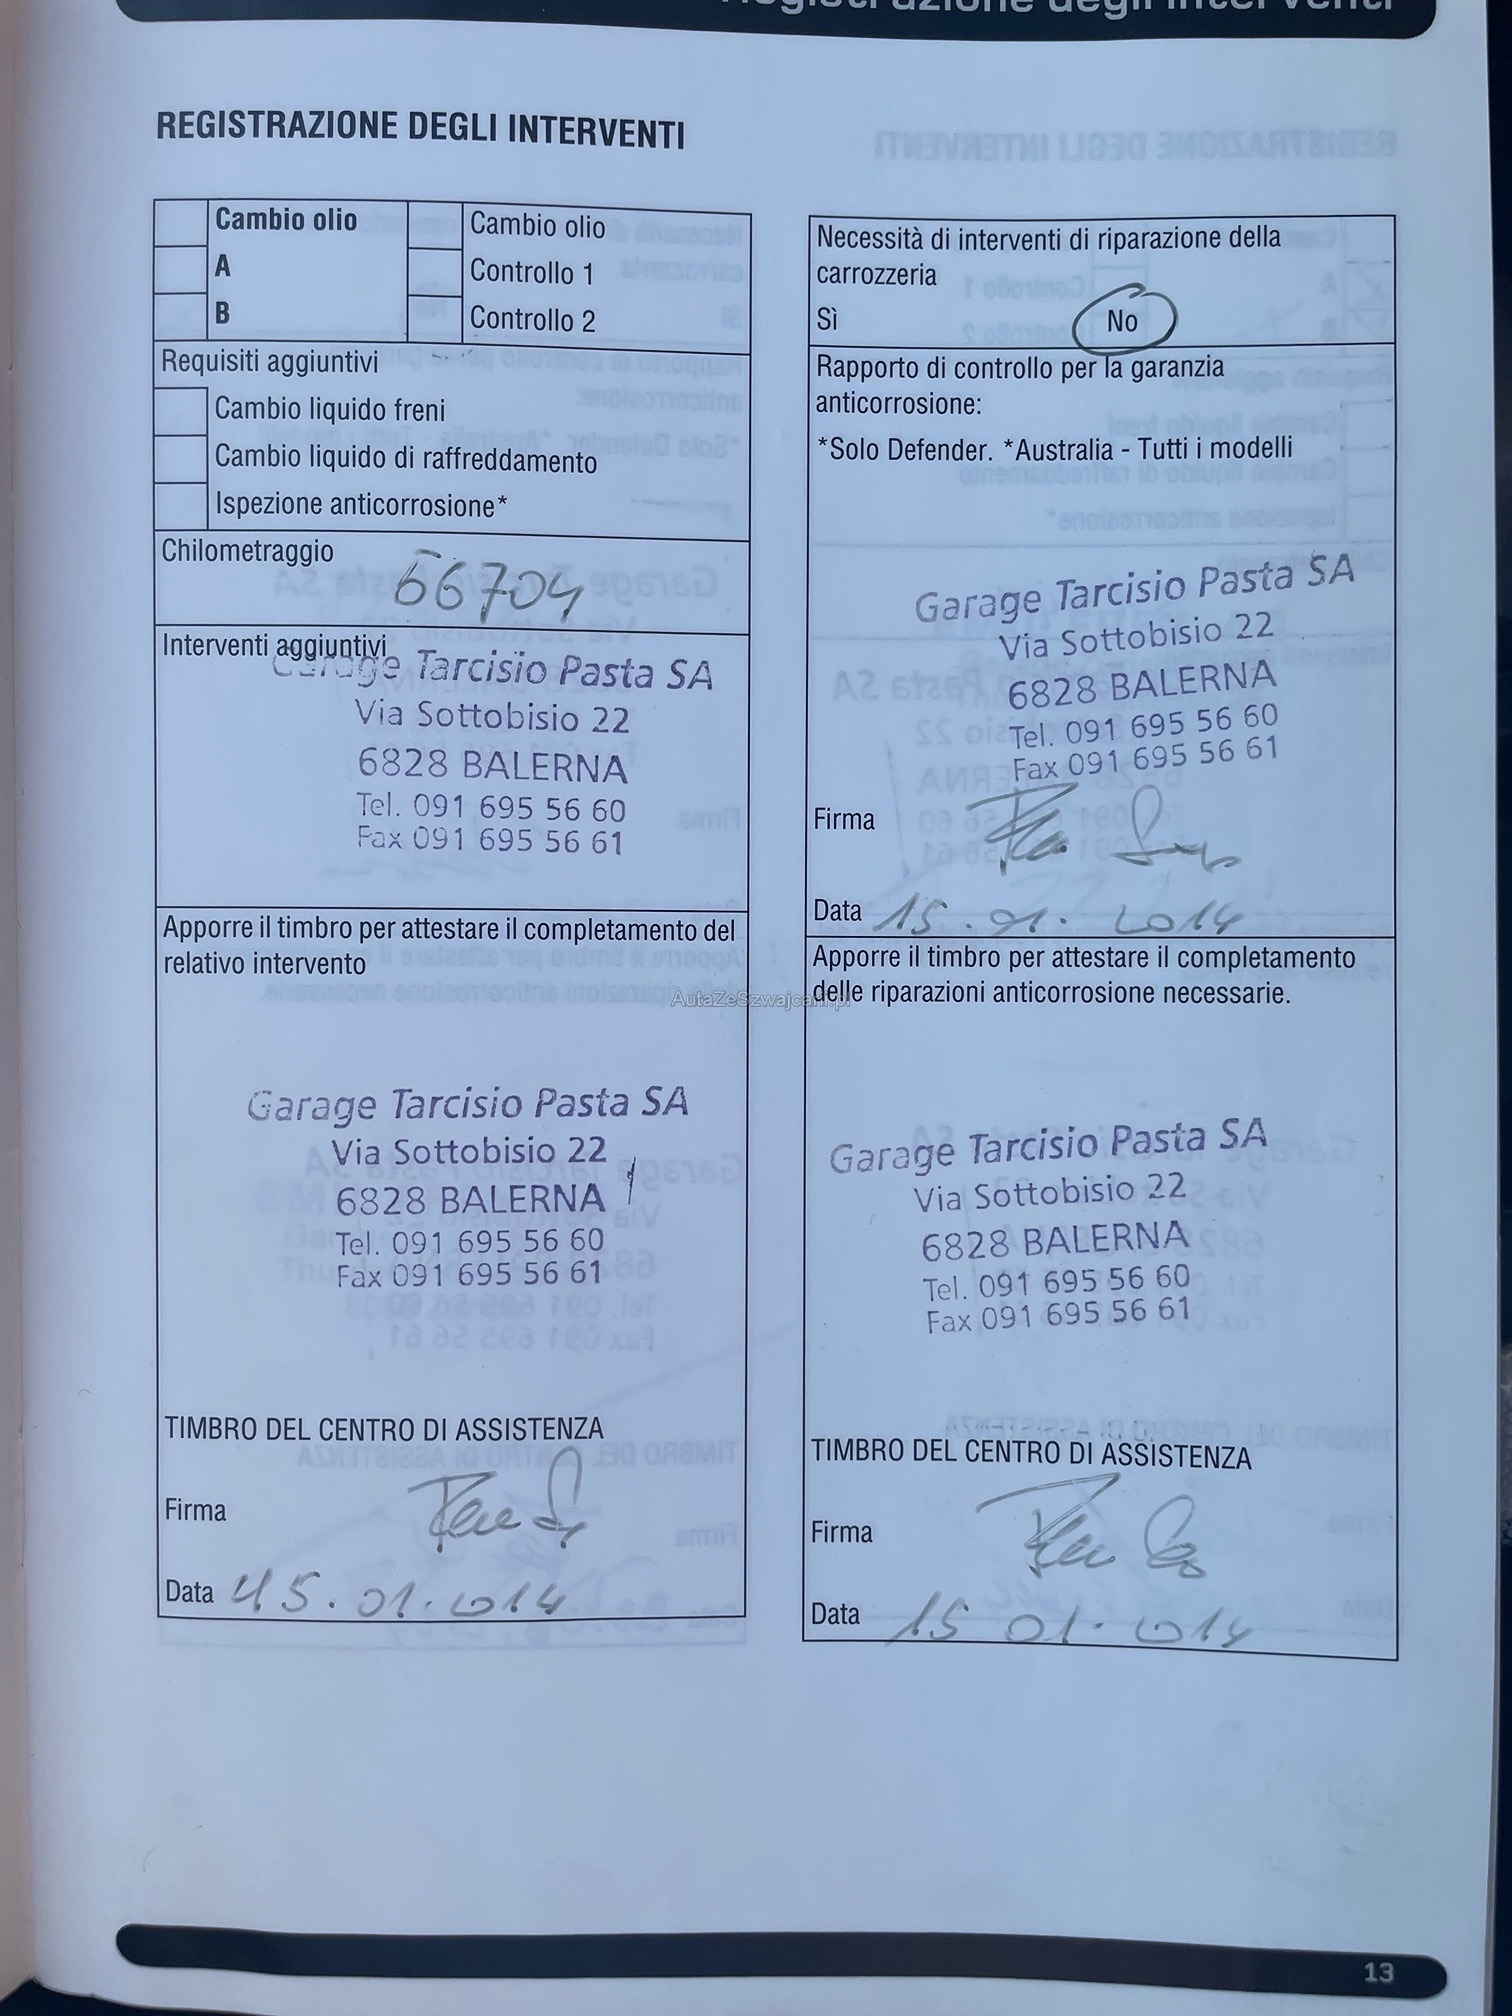 Registrazione degli interventi
REGISTRAZIONE DEGLI INTERVENTI
Cambio olio
A
B
Cambio olio
Controllo 1
Controllo 2
Requisiti aggiuntivi
Cambio liquido freni
Cambio liquido di raffreddamento
Ispezione anticorrosione*
Chilometraggio
66704
Interventi aggiuntivi
Garage Tarcisio Pasta SA
Via Sottobisio 22
6828 BALERNA
Tel. 091 695 56 60
Fax 091 695 56 61
Apporre il timbro per attestare il completamento del
relativo intervento
Garage Tarcisio Pasta SA
Via Sottobisio 22
6828 BALERNA
Tel. 091 695 56 60
Fax 091 695 56 61
TIMBRO DEL CENTRO DI ASSISTENZA
Firma
Data 15.01.2014
Necessità di interventi di riparazione della
carrozzeria
Sì No
Rapporto di controllo per la garanzia
anticorrosione:
*Solo Defender. *Australia - Tutti i modelli
Garage Tarcisio Pasta SA
Via Sottobisio 22
6828 BALERNA
Tel. 091 695 56 60
Fax 091 695 56 61
Firma
Data 15.01.2014
Apporre il timbro per attestare il completamento
delle riparazioni anticorrosione necessarie.
Garage Tarcisio Pasta SA
Via Sottobisio 22
6828 BALERNA
Tel. 091 695 56 60
Fax 091 695 56 61
TIMBRO DEL CENTRO DI ASSISTENZA
Firma
Data 15 01.2014
AutaZeSzwajcarii.pl
13